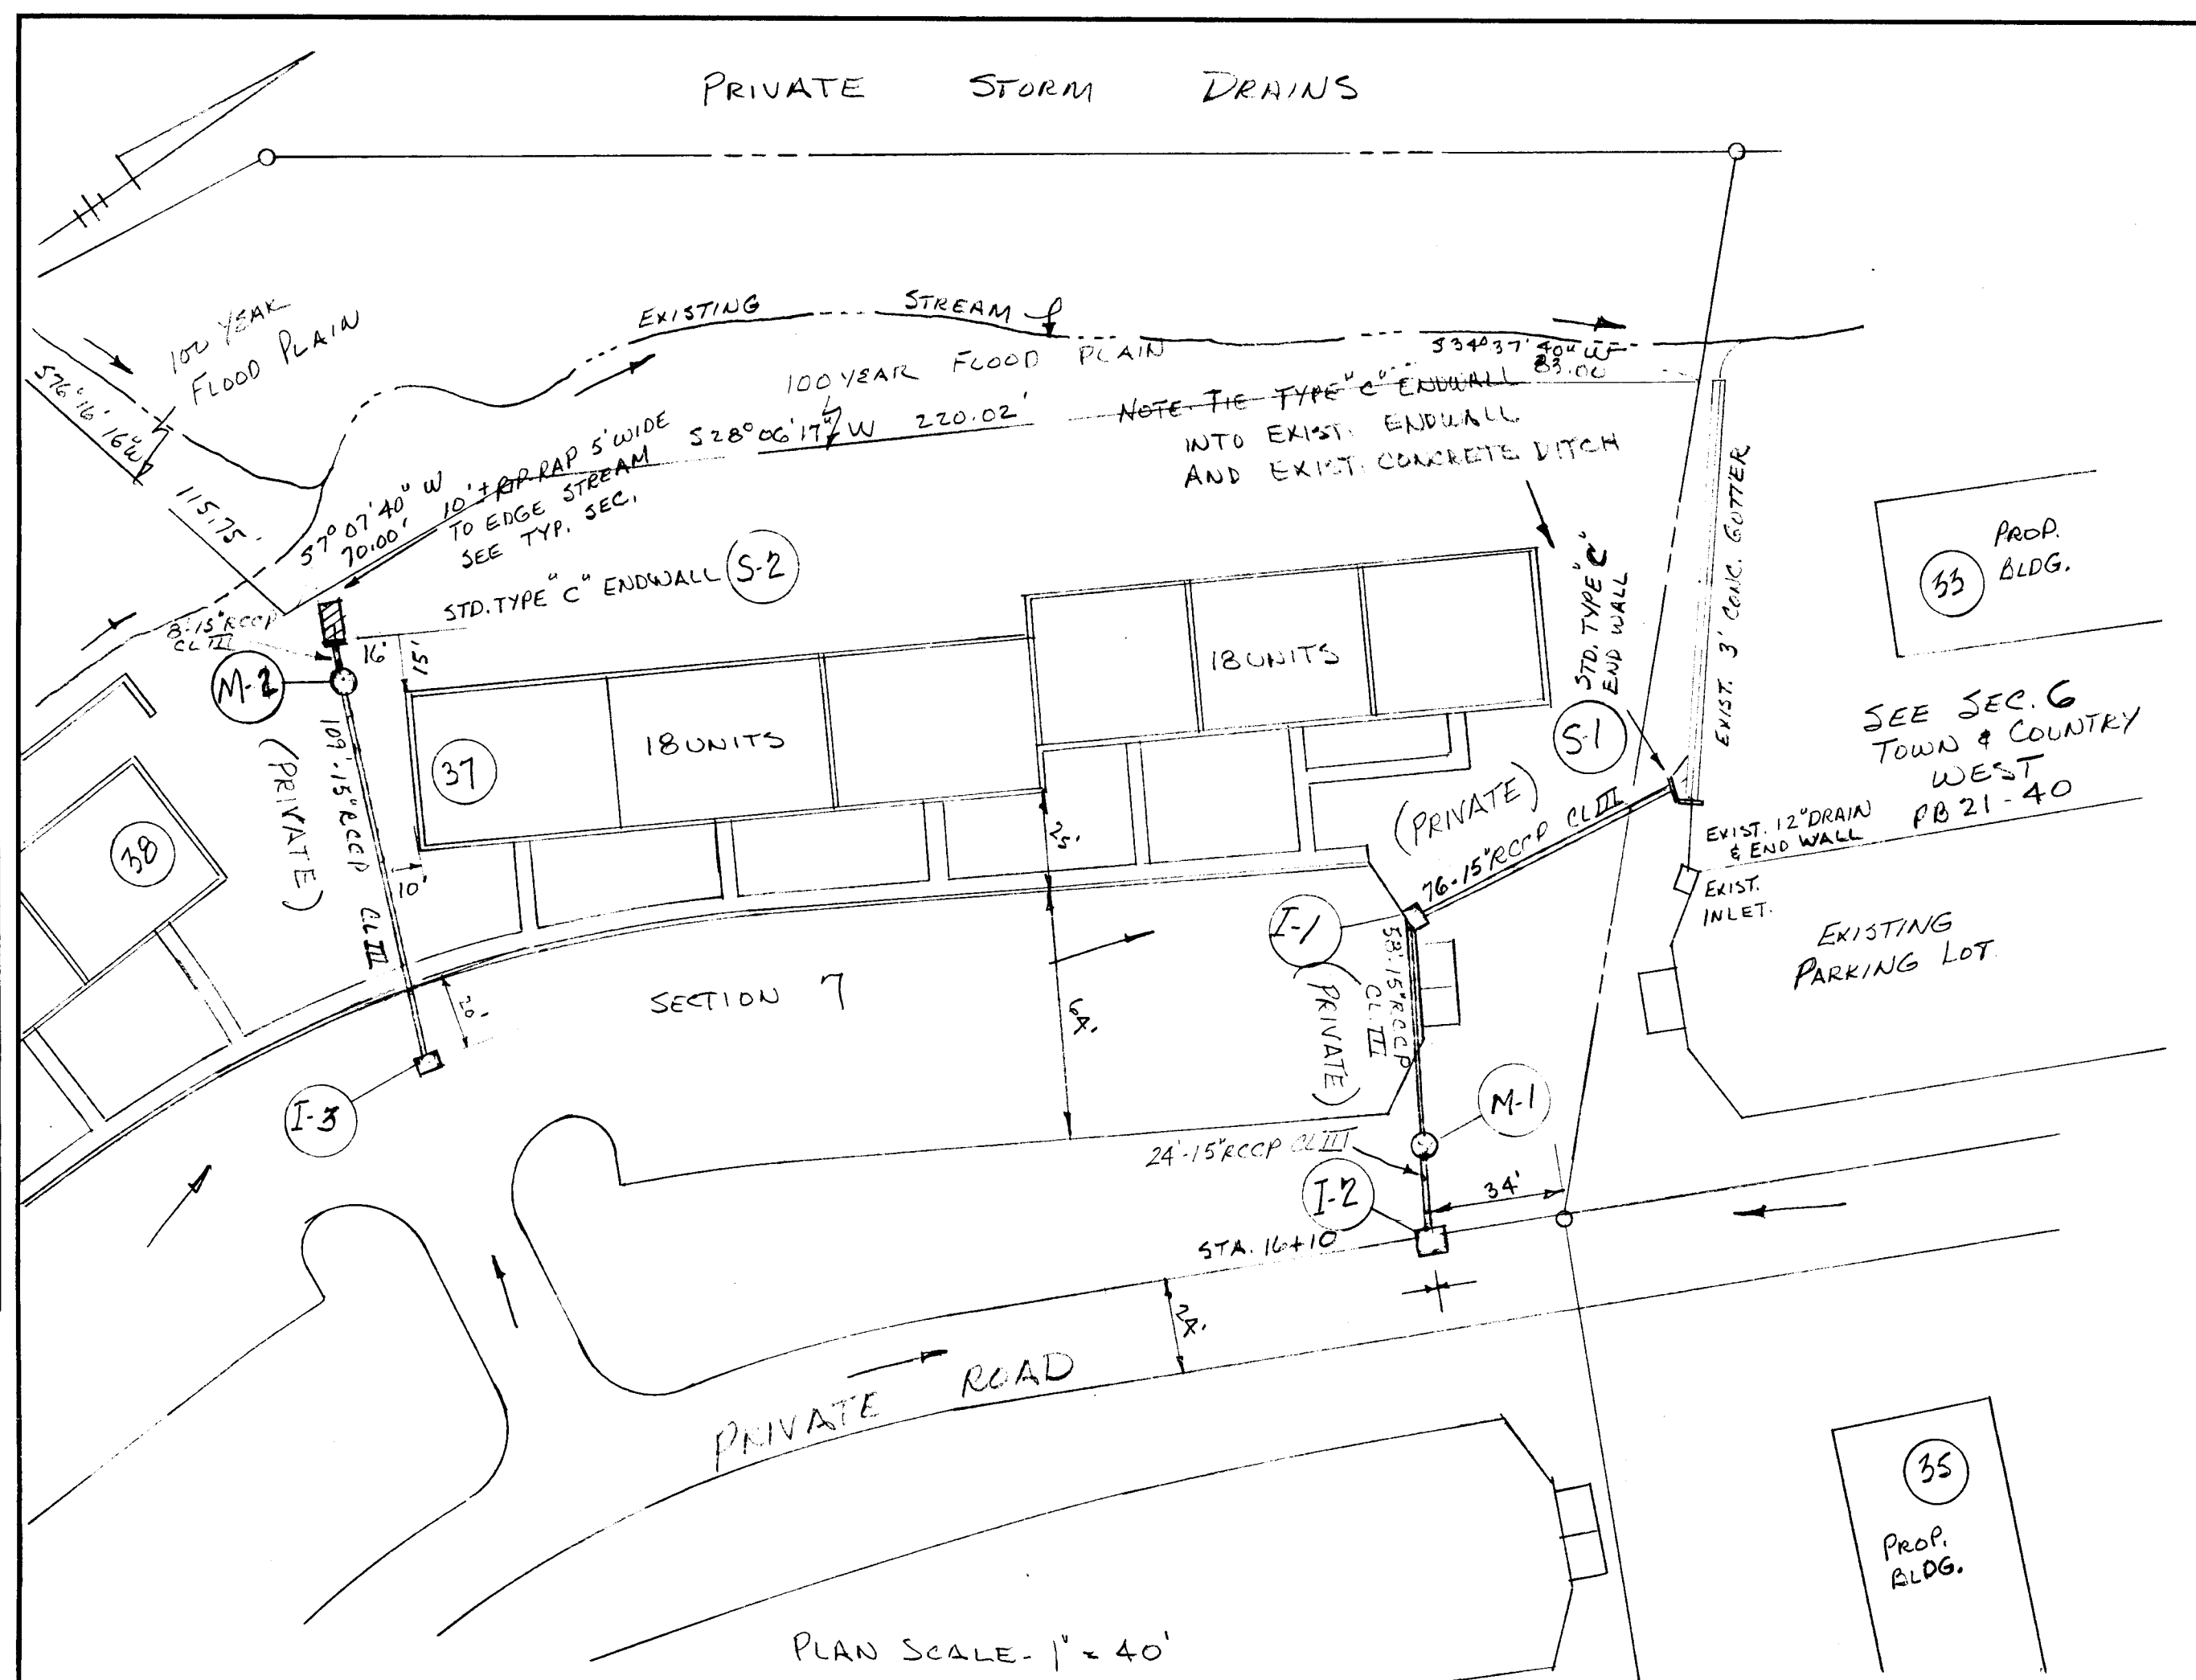 PRIVATE STORM DRAINS
100 YEAR
FLOOD PLAIN
EXISTING STREAM
100 YEAR FLOOD PLAIN
S34°37'40"W
83.00
S76°16'16"W
115.75'
S28°06'17"W 220.02'
NOTE- TIE TYPE "C" ENDWALL
INTO EXIST. ENDWALL
AND EXIST. CONCRETE DITCH
S7°07'40" W
70.00'
10'± RIP-RAP 5' WIDE
TO EDGE STREAM
SEE TYP. SEC.
STD. TYPE "C" ENDWALL
S-2
8'-15"RCCP
CL III
16'
15'
M-2
109'-15"RCCP CL III
(PRIVATE)
37
18 UNITS
18 UNITS
38
10'
20'
25'
64'
I-3
SECTION 7
STD. TYPE "C"
END WALL
S-1
EXIST. 3' CONC. GUTTER
33
PROP.
BLDG.
SEE SEC. 6
TOWN & COUNTRY
WEST
PB 21-40
(PRIVATE)
76-15"RCCP CL III
EXIST. 12" DRAIN
& END WALL
EXIST.
INLET.
EXISTING
PARKING LOT
I-1
58'-15"RCCP
CL. III
(PRIVATE)
M-1
24'-15"RCCP CL III
I-2
34'
STA. 16+10
24'
PRIVATE ROAD
35
PROP.
BLDG.
PLAN SCALE- 1" = 40'